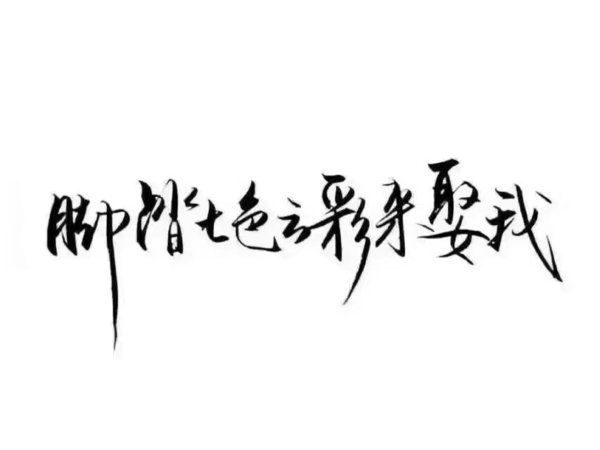 脚踏七色云彩来娶我